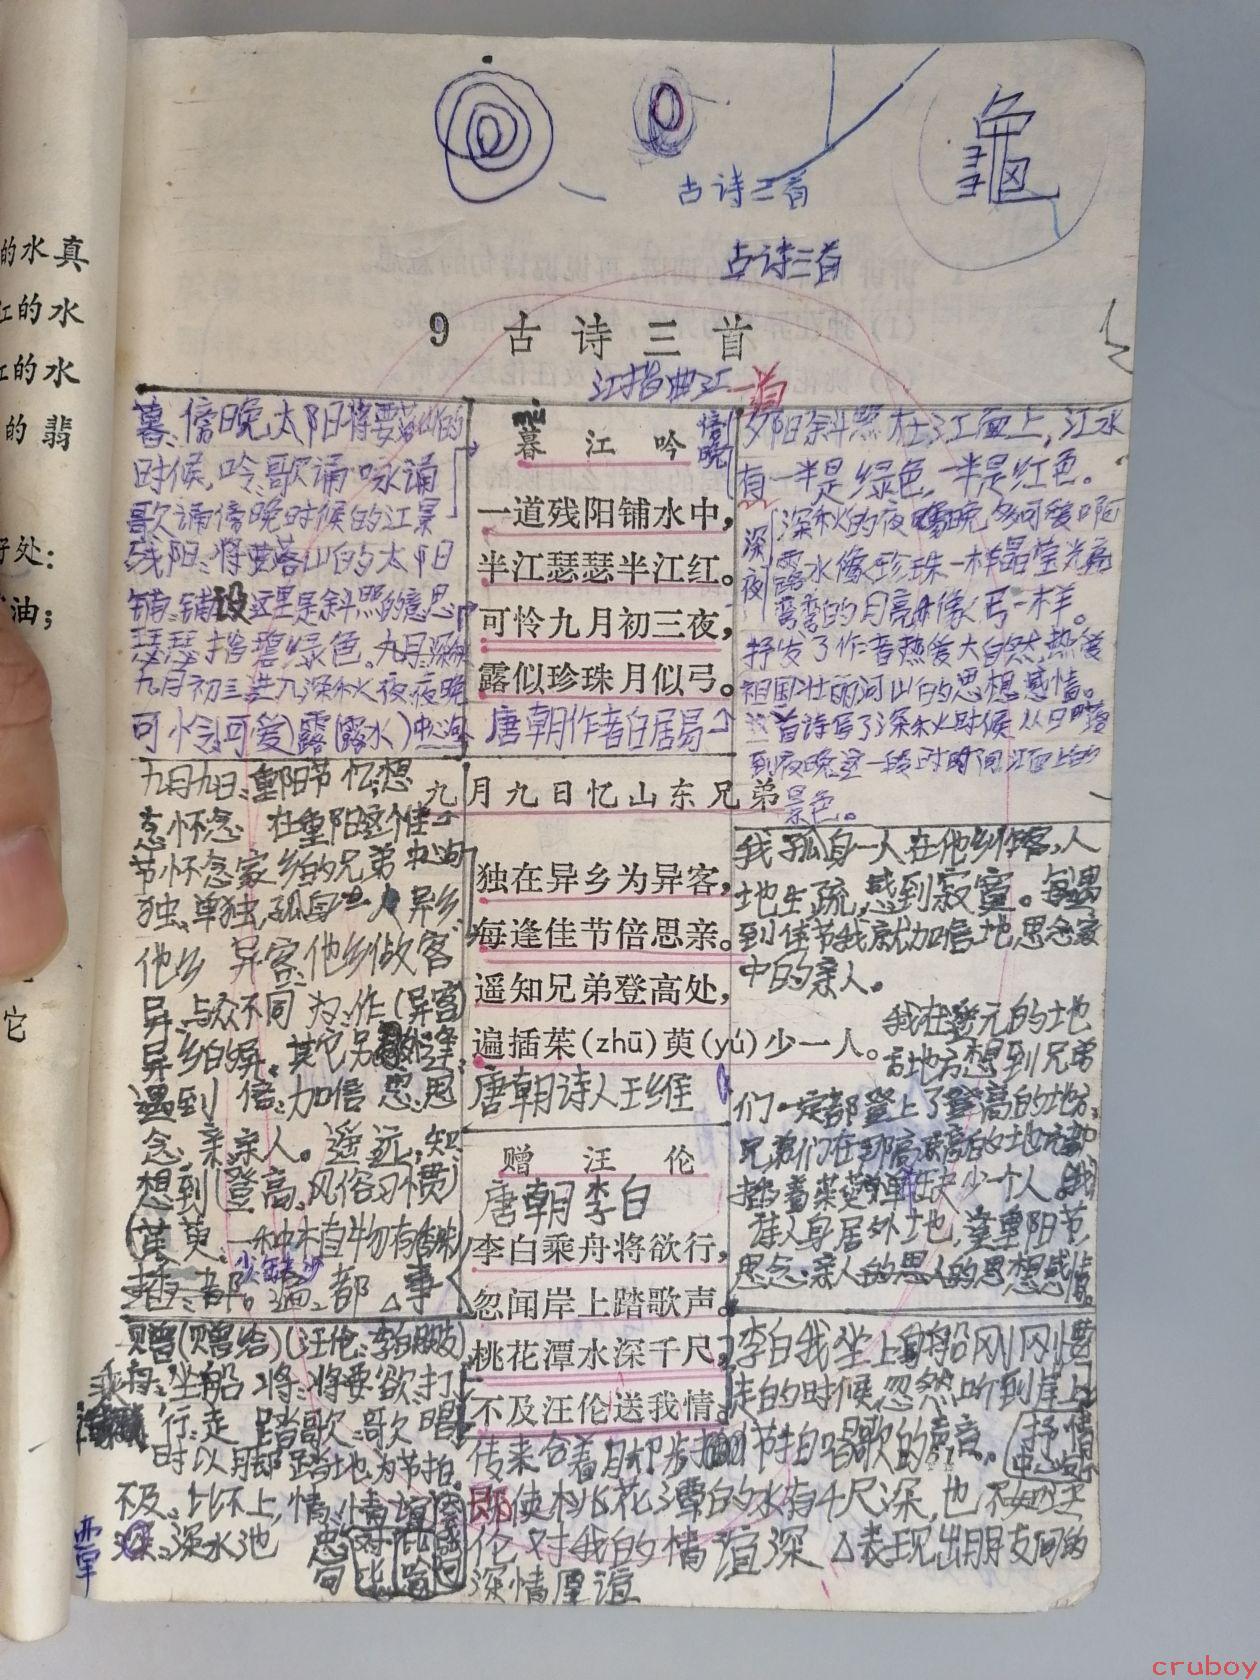 龜
古诗三首
古诗三首
9 古诗三首
江指曲江 一首
的水真
江的水
江的水
的翡
好处:
油;
它
暮、傍晚,太阳将要落山的
时候,吟、歌诵 咏诵
歌诵傍晚时候的江景
残阳:将要落山的太阳
铺:铺设 这里是斜照的意思
瑟瑟:指碧绿色。九月:深秋
九月初三进入深秋夜:夜晚
可怜:可爱(露(露水)中心句
mù
暮江吟
傍晚
一道残阳铺水中,
半江瑟瑟半江红。
可怜九月初三夜,
露似珍珠月似弓。
唐朝作者白居易
夕阳斜照在江面上,江水
有一半是绿色,一半是红色。
深夜
深秋的夜晚多可爱啊
露水像珍珠一样晶莹光
弯弯的月亮像弓一样。
抒发了作者热爱大自然,热爱
祖国壮丽河山的思想感情。
这首诗写了深秋时候从日落
到夜晚这一段时间江面上的
景色。
九月九日忆山东兄弟
九月九日:重阳节 忆:想
念怀念 在重阳这个佳
节怀念家乡的兄弟 中心句
独、单独,孤身一人 异乡、
他乡 异客:他乡做客
异:与众不同 为:作(异客)
遇到 倍:加倍 思:思
念 亲:亲人。遥:远,知:
想到(登高、风俗习惯)
茱萸、一种植物有香味
少:缺少
插:都。遍:都 △事
独在异乡为异客,
每逢佳节倍思亲。
遥知兄弟登高处,
遍插茱(zhū)萸(yú)少一人。
唐朝诗人王维
我孤身一人在他乡作客,人
地生疏,感到寂寞。每遇
到佳节我就加倍地思念家
中的亲人。
我在遥远的地
方想到兄弟
们一定都登上了登高的地方,
插着茱萸 缺少一个人。我
虽人身居外地,逢重阳节,
思念亲人的思想感情。
赠汪伦
唐朝李白
李白乘舟将欲行,
忽闻岸上踏歌声。
桃花潭水深千尺,
不及汪伦送我情。
赠(赠给)(汪伦:李白朋友)
乘舟:坐船 将:将要 欲:打
行:走 踏歌:歌唱
时以脚踏地为节拍。
不及:比不上,情:情谊
潭
深水池
对比
李白我坐上船刚刚要
走的时候忽然听到岸上
传来合着脚步 节拍唱歌的声音。
抒情
中心句
即使桃花潭的水有千尺深,也不如汪
伦对我的情谊深 △表现出朋友间的
深情厚谊
cruboy